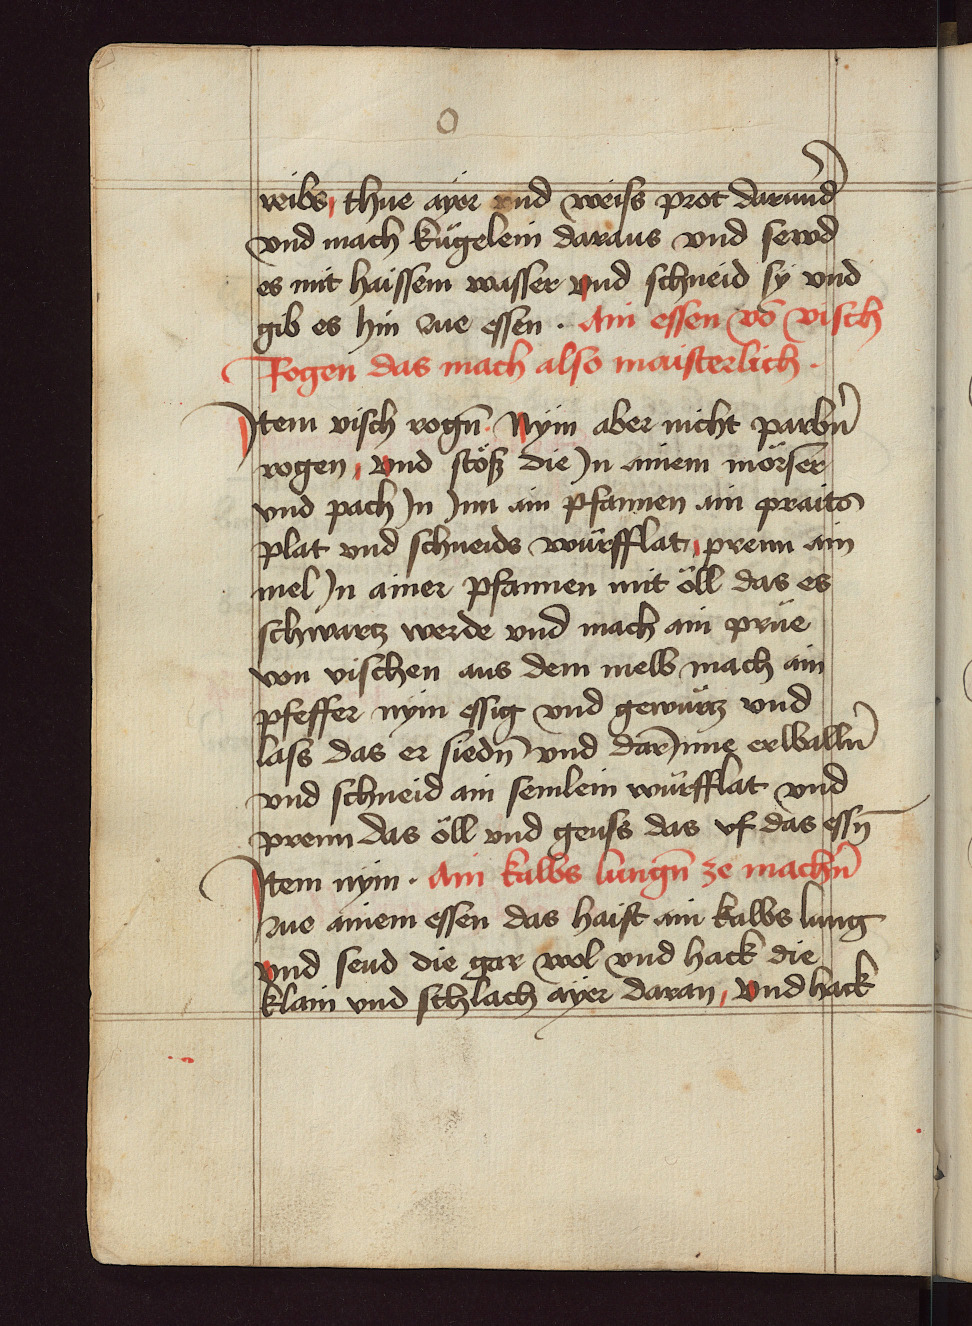 O
reibs, thue ayer vnd weiss prot darund̄
vnd mach kügelein daraus vnd sewd
es mit haissem wasser vnd schneid sy vnd
gib es hin zue essen . Ain essen vō visch
Rogen das mach also maisterlich .
Item visch rogn̄ Nÿm aber nicht parbn̄
rogen, vnd stöß die In ainem mörser
vnd pach In Inn ain pfannen ain praits
plat vnd schneids würfflat, prenn ain
mel In ainer pfannen mit öll das es
schwartz werde vnd mach ain prüe
von vischen aus dem melb mach ain
pfeffer nÿm essig vnd gewürtz vnd
lass das er siedn̄ vnd darInne erwalln̄
vnd schneid ain semlein würfflat vnd
prenn das öll vnd geuss das vf das essn̄
Item nym . Ain kalbs lungn̄ ze machn̄
zue ainem essen das haist ain kalbs lung
vnd seud die gar wol vnd hack die
klain vnd schlach ayer daran, vnd hack